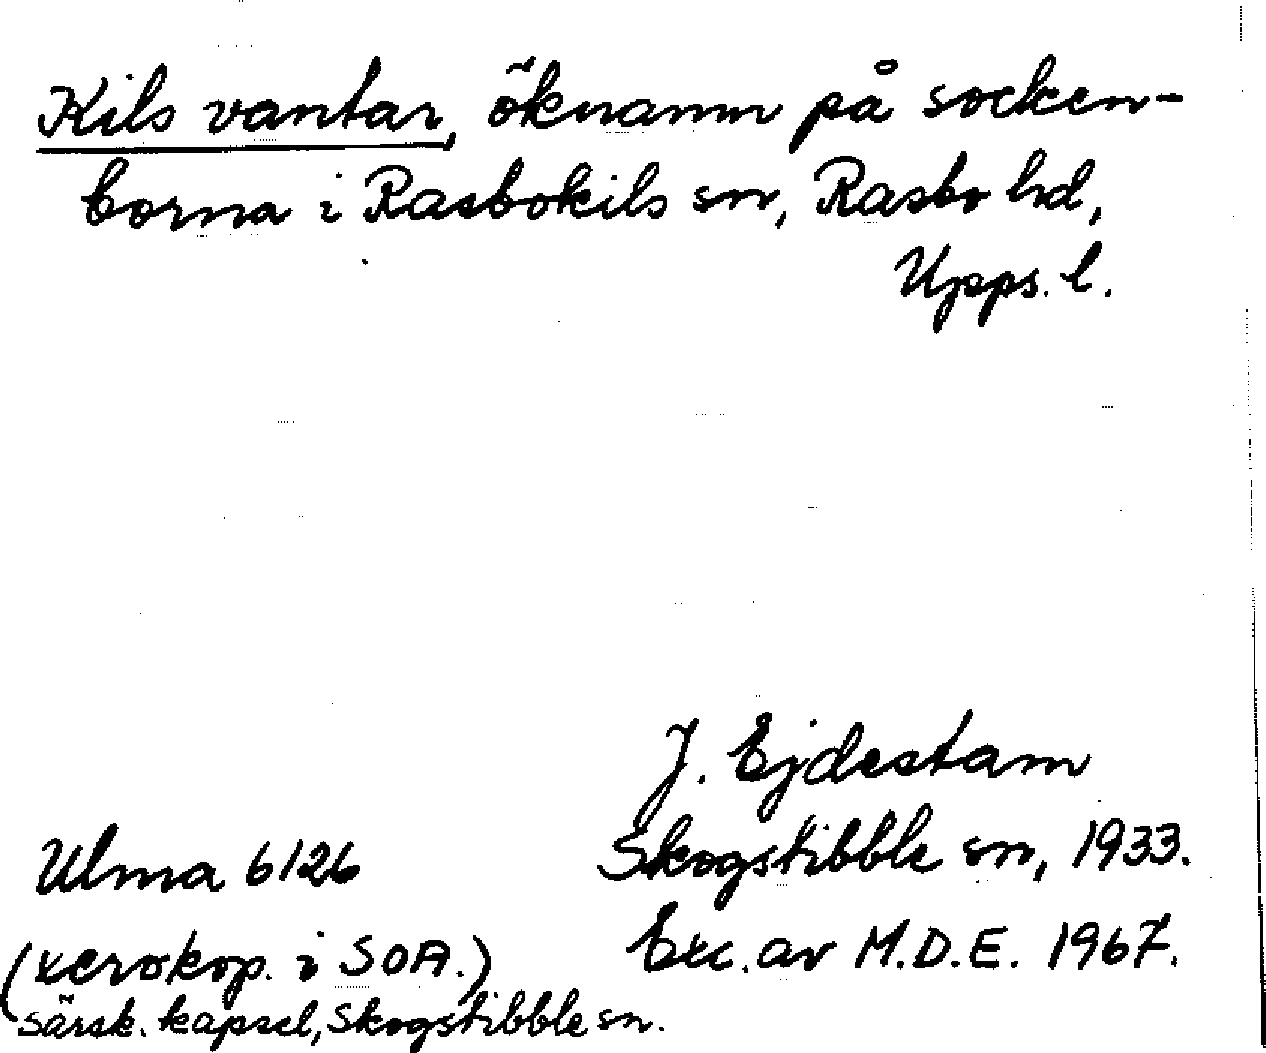 Kils vantar, öknamn på socken-
borna i Rasbokils sn, Rasbo hd,
Upps. l.
J. Ejdestam
Ulma 6126
Skogstibble sn, 1933.
(xerokop. i SOA.)
Exc. av M.D.E. 1967.
särsk. kapsel, Skogstibble sn.